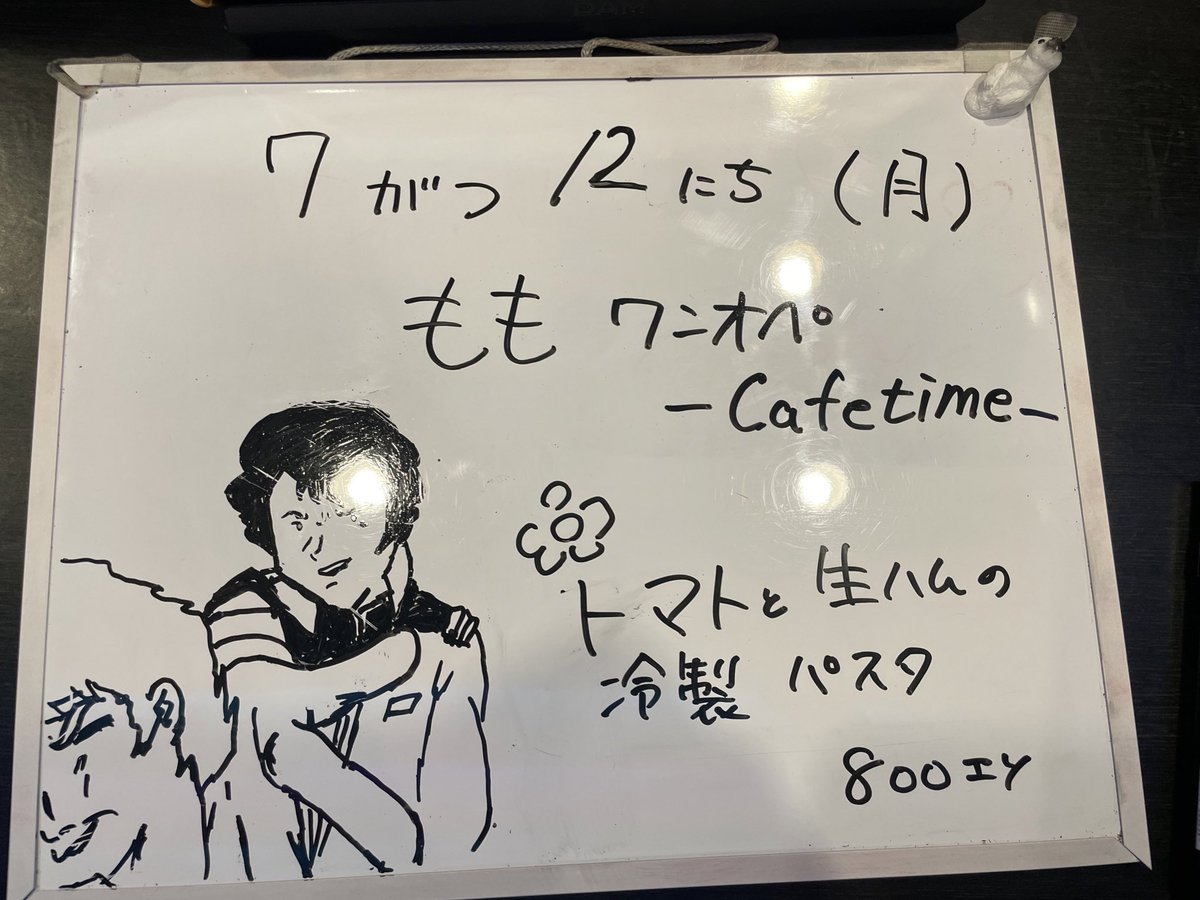 DAM
7がつ12にち(月)
もも ワンオペ
-Cafetime-
トマトと生ハムの
冷製 パスタ
800エン